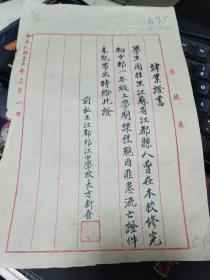 肄業證書
學生周桂生江蘇省江都縣人曾在本校修完
初中部一年級上學期課程現因匪患流亡證件
未能帶出特給此證
前私立江都培江中學校長方新吾
年三月一日